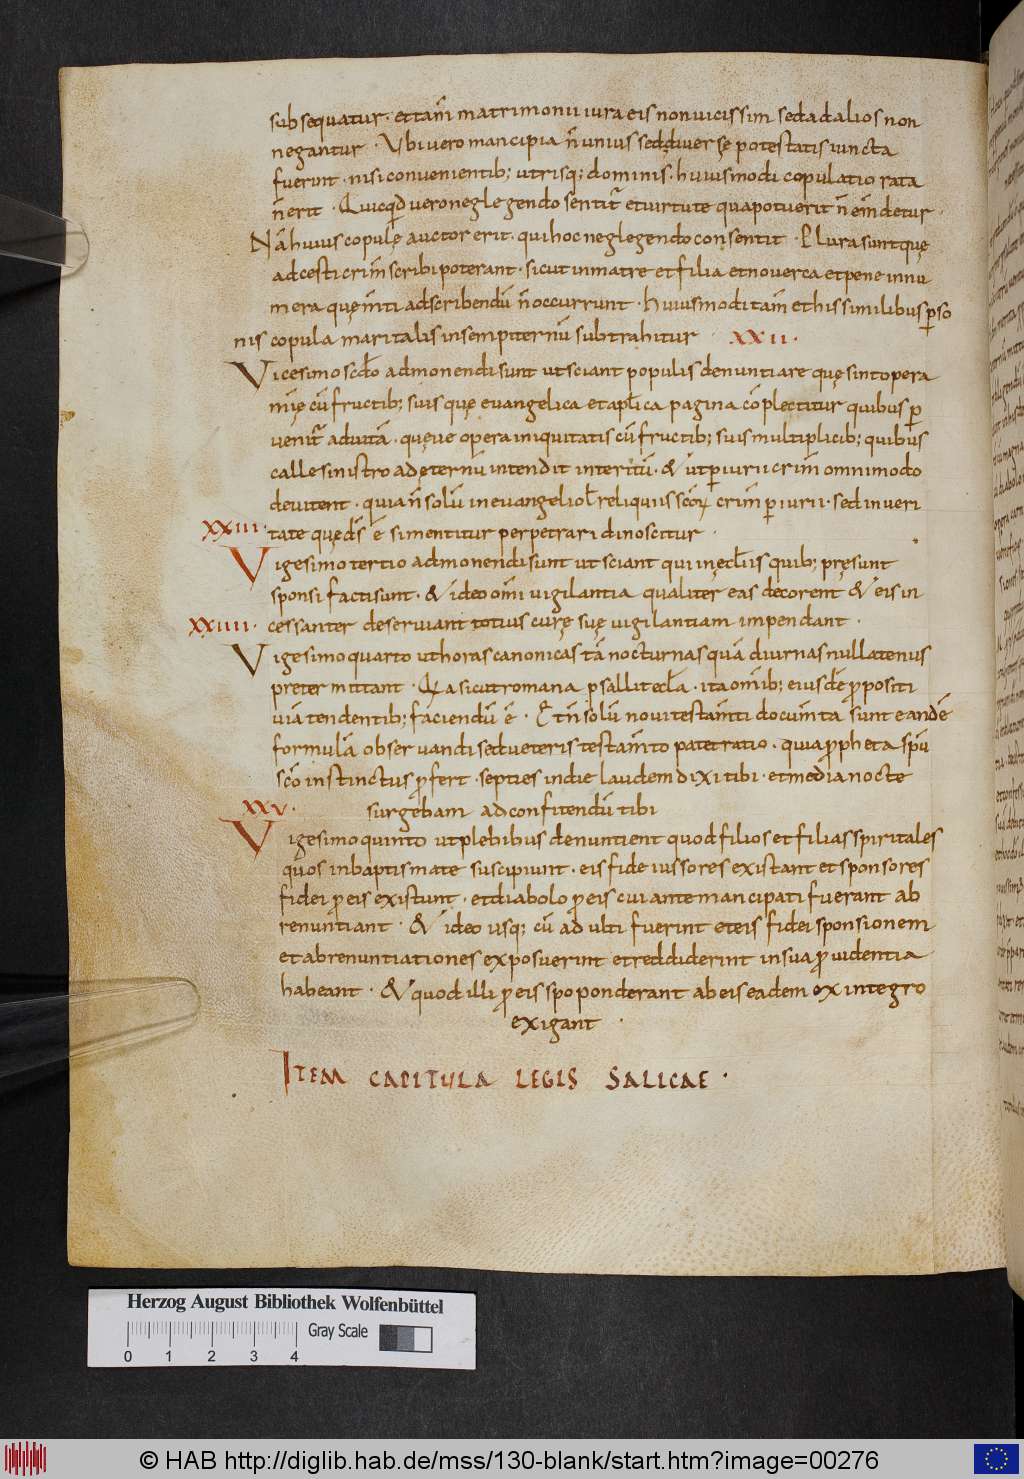 subsequatur · et tam̄ matrimonii iura eis non vicissim sed ad alios non
negantur · Ubi vero mancipia n̄ unius sed diversę potestatis iuncta
fuerint · nisi convenientib; utrisq; dominis · huiusmodi copulatio rata
n̄ erit · Quicq̄d vero neglegendo sentit᷑ et virtute qua potuerit n̄ em̄detur ·
Nā huius copulę auctor erit · qui hoc neglegendo consentit · Plura sunt quę
ad cesti crim̄ scribi poterant · sicut in matre et filia et noverca et pene innu
mera quę m̄ti adscribendū n̄ occurrunt · huiusmodi tam̄ et his similibus p̱so
nis copula maritalis in sempiternū subtrahitur · XXII ·
Vicesimo scd̄o admonendi sunt ut sciant populis denuntiare quę sint opera
mīę cū fructib; suis quę evangelica et apl̄ica pagina cōplectitur quibus p̱
venit᷑ ad vitā · quęve opera iniquitatis cū fructib; suis multiplicib; quibus
calle sinistro ad ęternū intendit interitū · & ut p̱iurii crim̄ omnimodo
devitent · quia n̄ solū in evangelio l̄ reliquiis scōꝝ crim̄ p̱iurii · sed in veri
XXIII · tate quę d̄s ē si mentitur perpetrari dinoscitur ·
Vigesimo tertio admonendi sunt ut sciant qui in ęcl̄is quib; pręsunt
sponsi facti sunt · & ideo om̄i vigilantia qualiter eas decorent & eis in
XXIIII · cessanter deserviant totius curę suę vigilantiam impendant ·
Vigesimo quarto ut horas canonicas tā nocturnas quā diurnas nullatenus
pretermittant · Q̄a sicut romana psallit ecl̄a · ita om̄ib; eiusdē p̱positi
viā tendentib; faciendū ē · Et n̄ solū novi testam̄ti docum̄ta sunt eandē
formulā observandi sed veteris testam̄to patet ratio · quia p̱pheta sp̄u
scō instinctus p̱fert · septies in die laudem dixi tibi · et media nocte
XXV · surgebam ad confitendū tibi
Vigesimo quinto ut plebibus denuntient quod filios et filias spiritales
quos in baptismate suscipiunt · eis fideiussores existant et sponsores
fidei p̱ eis existunt · et diabolo p̱ eis cui ante mancipati fuerant ab
renuntiant · & ideo usq; cū adulti fuerint et eis fidei sponsionem
et abrenuntiationes exposuerint et reddiderint in sua p̱videntia
habeant · & quod illi p̱ eis spoponderant ab eis eadem ex integro
exigant ·
ITEM CAPITULA LEGIS SALICAE ·
Herzog August Bibliothek Wolfenbüttel
Gray Scale
0 1 2 3 4
© HAB http://diglib.hab.de/mss/130-blank/start.htm?image=00276